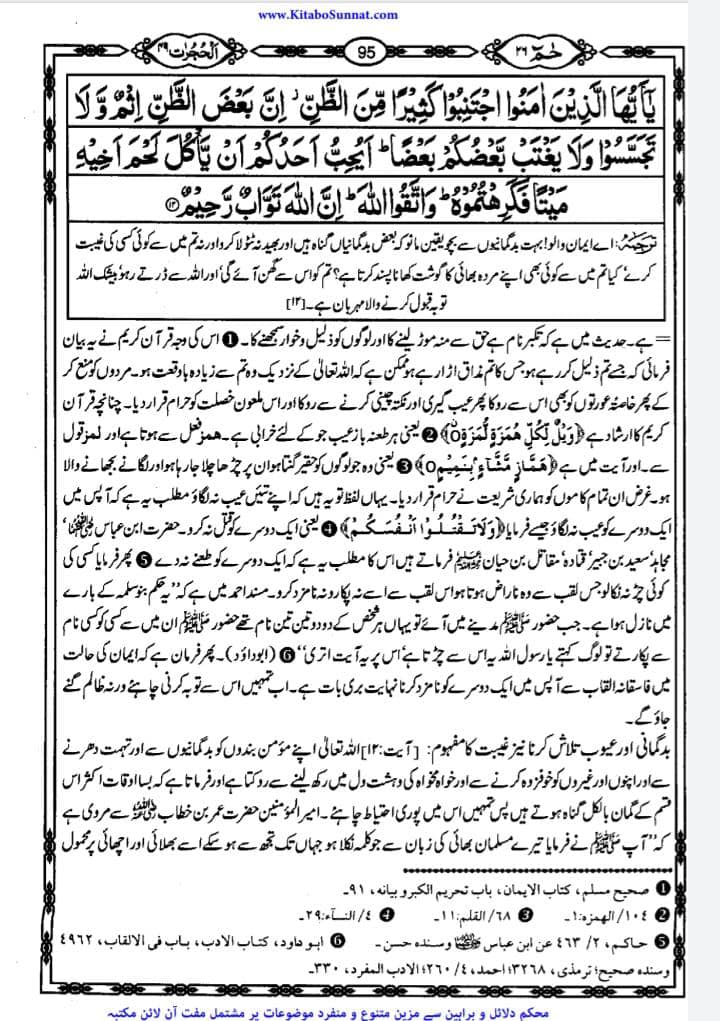 www.KitaboSunnat.com
اَلْحُجُرَات ۴۹
95
حٰمٓ ۲۶
يٰۤاَيُّهَا الَّذِيْنَ اٰمَنُوا اجْتَنِبُوْا كَثِيْرًا مِّنَ الظَّنِّ ۫ اِنَّ بَعْضَ الظَّنِّ اِثْمٌ وَّلَا
تَجَسَّسُوْا وَلَا يَغْتَبْ بَّعْضُكُمْ بَعْضًا ؕ اَيُحِبُّ اَحَدُكُمْ اَنْ يَّاْكُلَ لَحْمَ اَخِيْهِ
مَيْتًا فَكَرِهْتُمُوْهُ ؕ وَاتَّقُوا اللّٰهَ ؕ اِنَّ اللّٰهَ تَوَّابٌ رَّحِيْمٌ ۝۱۲
ترجمہ: اے ایمان والو! بہت بدگمانیوں سے بچو یقین مانو کہ بعض بدگمانیاں گناہ ہیں اور بھید نہ ٹٹولا کرو اور نہ تم میں سے کوئی کسی کی غیبت
کرے' کیا تم میں سے کوئی بھی اپنے مردہ بھائی کا گوشت کھانا پسند کرتا ہے؟ تم کو اس سے گھن آئے گی' اور اللہ سے ڈرتے رہو' بیشک اللہ
توبہ قبول کرنے والا مہربان ہے۔[۱۲]
= ہے۔ حدیث میں ہے کہ تکبر نام ہے حق سے منہ موڑ لینے کا اور لوگوں کو ذلیل و خوار سمجھنے کا۔ ❶ اس کی وجہ قرآن کریم نے یہ بیان
فرمائی کہ جسے تم ذلیل کر رہے ہو جس کا تم مذاق اڑا رہے ہو ممکن ہے کہ اللہ تعالیٰ کے نزدیک وہ تم سے زیادہ باوقعت ہو۔ مردوں کو منع کر
کے پھر خاصتہً عورتوں کو بھی اس سے روکا پھر عیب گیری اور نکتہ چینی کرنے سے روکا اور اس ملعون خصلت کو حرام قرار دیا۔ چنانچہ قرآن
کریم کا ارشاد ہے ﴿وَيْلٌ لِّكُلِّ هُمَزَةٍ لُّمَزَةٍ۝﴾ ❷ یعنی ہر طعنہ باز عیب جو کے لئے خرابی ہے۔ ھمز فعل سے ہوتا ہے اور لمز قول
سے۔ اور آیت میں ہے ﴿هَمَّازٍ مَّشَّاءٍ بِنَمِيْمٍ۝﴾ ❸ یعنی وہ جو لوگوں کو حقیر گنتا ہو ان پر چڑھا چلا جا رہا ہو اور لگانے بجھانے والا
ہو۔ غرض ان تمام کاموں کو ہماری شریعت نے حرام قرار دیا۔ یہاں لفظ تو یہ ہیں کہ اپنے تئیں عیب نہ لگاؤ مطلب یہ ہے کہ آپس میں
ایک دوسرے کو عیب نہ لگاؤ جیسے فرمایا ﴿وَلَا تَقْتُلُوْا اَنْفُسَكُمْ﴾ ❹ یعنی ایک دوسرے کو قتل نہ کرو۔ حضرت ابن عباس رضی اللہ عنہما'
مجاہد' سعید بن جبیر' قتادہ' مقاتل بن حیان رحمہم اللہ فرماتے ہیں اس کا مطلب یہ ہے کہ ایک دوسرے کو طعنے نہ دے ❺ پھر فرمایا کسی کی
کوئی چڑ نہ نکالو جس لقب سے وہ ناراض ہوتا ہو اس لقب سے اسے نہ پکارو نہ نامزد کرو۔ مسند احمد میں ہے کہ "یہ حکم بنو سلمہ کے بارے
میں نازل ہوا ہے۔ جب حضور ﷺ مدینے میں آئے تو یہاں ہر شخص کے دو دو تین تین نام تھے حضور ﷺ ان میں سے کسی کو کسی نام
سے پکارتے تو لوگ کہتے یا رسول اللہ یہ اس سے چڑتا ہے' اس پر یہ آیت اتری" ❻ (ابوداؤد)۔ پھر فرمان ہے کہ ایمان کی حالت
میں فاسقانہ القاب سے آپس میں ایک دوسرے کو نامزد کرنا نہایت بری بات ہے۔ اب تمہیں اس سے توبہ کرنی چاہئے ورنہ ظالم گنے
جاؤ گے۔
بدگمانی اور عیوب تلاش کرنا نیز غیبت کا مفہوم: [آیت:۱۲] اللہ تعالیٰ اپنے مؤمن بندوں کو بدگمانیوں سے اور تہمت دھرنے
سے اور اپنوں اور غیروں کو خوفزدہ کرنے سے اور خواہ مخواہ کی دہشت دل میں رکھ لینے سے روکتا ہے اور فرماتا ہے کہ بسا اوقات اکثر اس
قسم کے گمان بالکل گناہ ہوتے ہیں پس تمہیں اس میں پوری احتیاط چاہئے۔ امیر المؤمنین حضرت عمر بن خطاب رضی اللہ عنہ سے مروی ہے
کہ "آپ ﷺ نے فرمایا تیرے مسلمان بھائی کی زبان سے جو کلمہ نکلا ہو جہاں تک تجھ سے ہو سکے اسے بھلائی اور اچھائی پر محمول
❶ صحیح مسلم، کتاب الایمان، باب تحریم الکبر و بیانہ، ۹۱۔
❷ ۱۰۴/ الهمزه:۱۔ ❸ ۶۸/ القلم:۱۱۔ ❹ ۴/ النسآء:۲۹۔
❺ حاکم، ۲/ ۴۶۳ عن ابن عباس رضی اللہ عنہما وسندہ حسن۔ ❻ ابو داود، کتاب الادب، باب فی الالقاب، ۴۹۶۲
وسندہ صحیح؛ ترمذی، ۳۲۶۸؛ احمد، ۴/ ۲۶۰؛ الادب المفرد، ۳۳۰۔
محکم دلائل و براہین سے مزین متنوع و منفرد موضوعات پر مشتمل مفت آن لائن مکتبہ